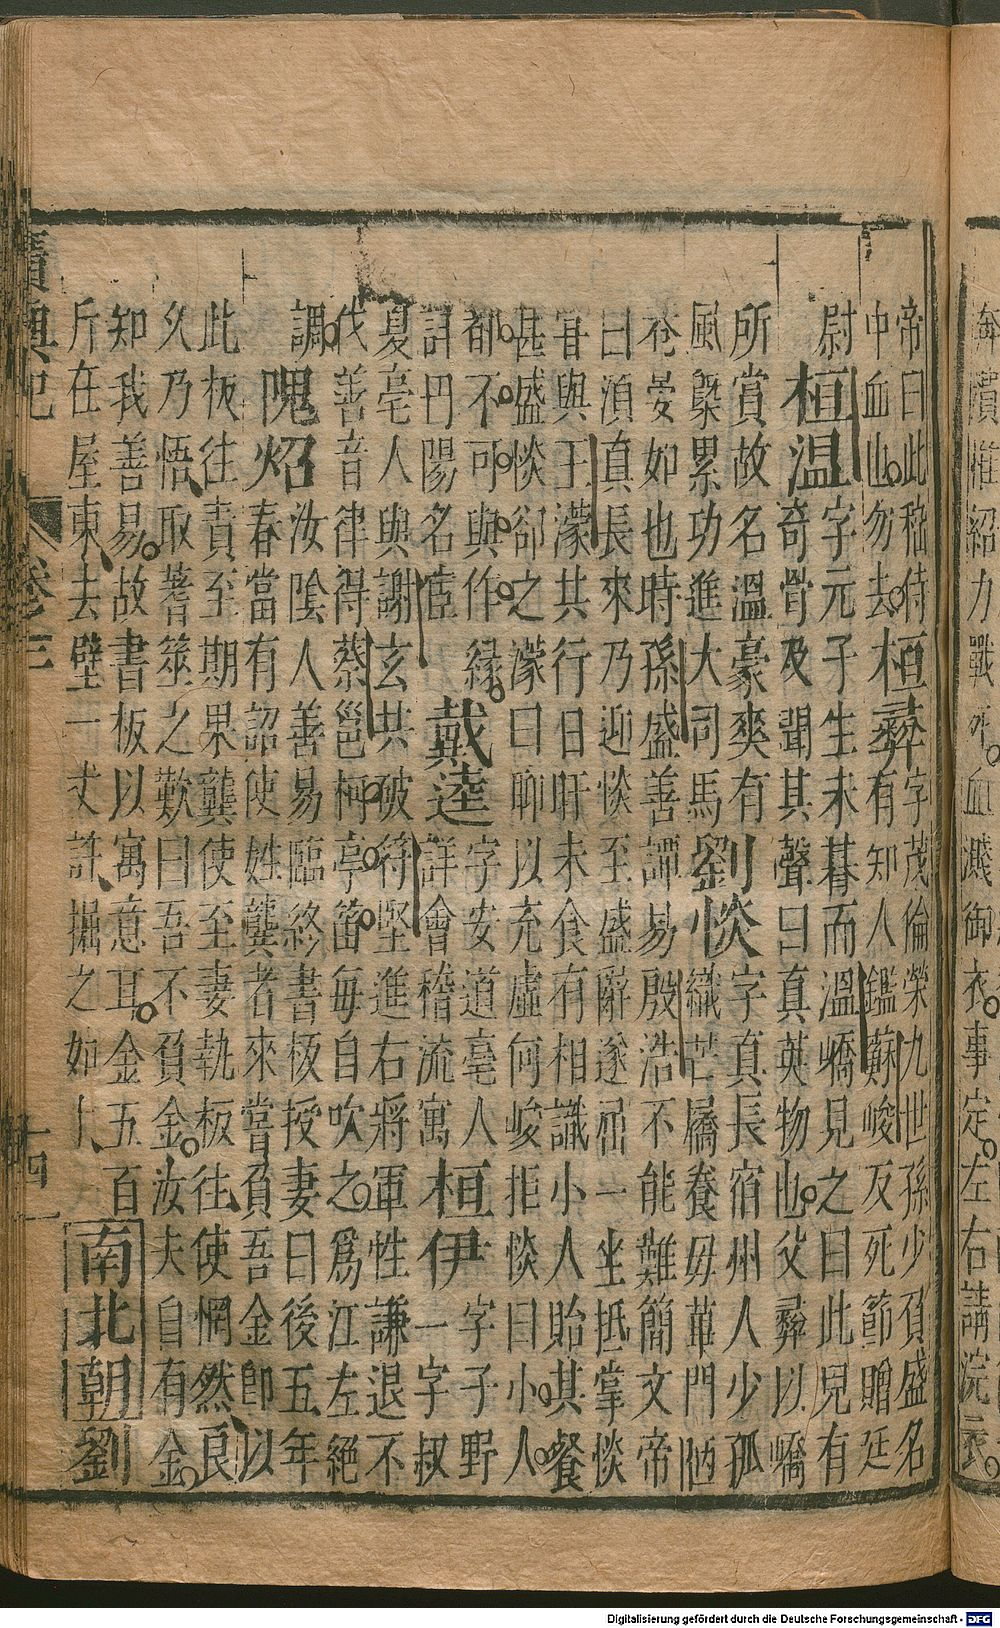 奔潰惟紹力戰死血濺御衣事定左右請浣衣
帝曰此嵇侍
中血也勿去
桓彝
字茂倫榮九世孫少負盛名
有知人鑑蘇峻反死節贈廷
尉
桓溫
字元子生未朞而溫嶠見之曰此兒有
奇骨及聞其聲曰真英物也父彝以嶠
所賞故名溫豪爽有
風槩累功進大司馬
劉惔
字真長宿州人少孤
織芒屩養母蓽門陋
巷晏如也時孫盛善譚易殷浩不能難簡文帝
曰湏真長來乃迎惔至盛辭遂屈一坐抵掌惔
甞與王濛共行日旰未食有相識小人貽其餐
甚盛惔卻之濛曰聊以充虛何峻拒惔曰小人
都不可與作縁
丹陽名宦
戴逵
字安道亳人
詳會稽流寓
桓伊
字子野
一字叔
夏亳人與謝玄共破符堅進右將軍性謙退不
伐善音律得蔡邕柯亭笛毎自吹之爲江左絕
調
隗炤
汝隂人善易臨終書板授妻曰後五年
春當有詔使姓龔者來嘗負吾金即以
此板往責至期果龔使至妻執板往使惘然良
久乃悟取蓍筮之歎曰吾不負金汝夫自有金
知我善易故書板以寓意耳金五百
斤在屋東去壁一丈許掘之如卜
南北朝
劉
廣輿記
卷三
十四
Digitalisierung gefördert durch die Deutsche Forschungsgemeinschaft - DFG